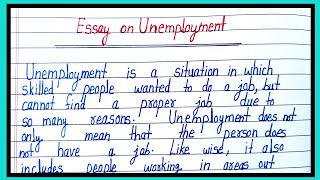 Essay on Unemployment
Unemployment is a situation in which
skilled people wanted to do a job, but
cannot find a proper job due to
so many reasons. Unemployment does not
only mean that the person does
not have a job. Like wise, it also
includes people working in areas out